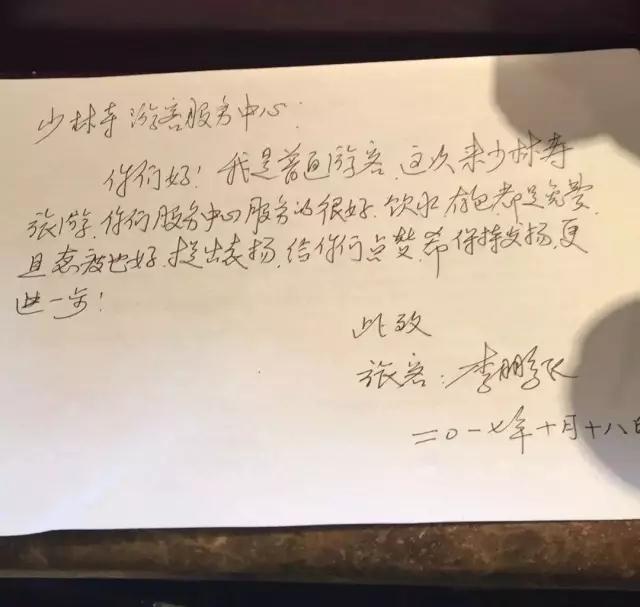 少林寺游客服务中心:
你们好！我是普通游客，这次来少林寺
旅游，你们服务中心服务的很好，饮水存包都是免费，
且态度也好，提出表扬，给你们点赞，希保持发扬，更
进一步！
此致
旅客：李鹏飞
二0一七年十月十八日